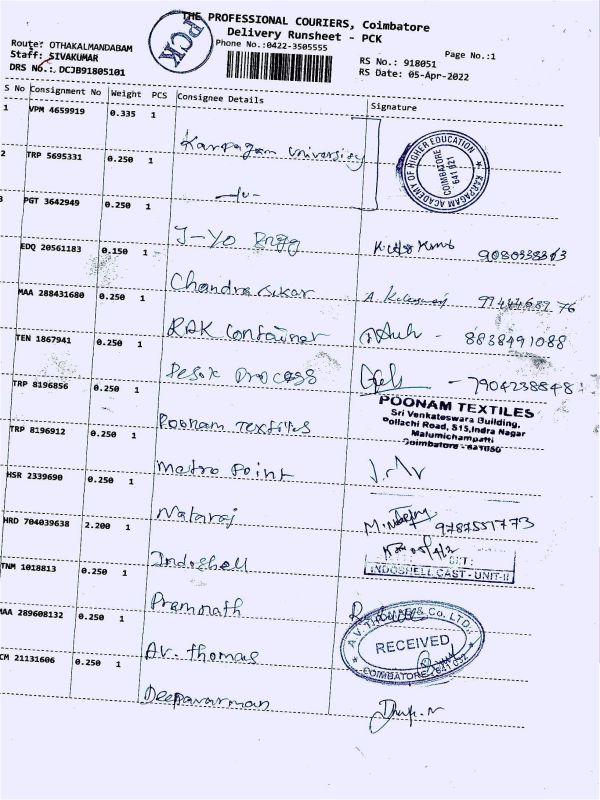 THE PROFESSIONAL COURIERS, Coimbatore
Delivery Runsheet - PCK
PCK
Phone No.:0422-3505555
Route: OTHAKALMANDABAM
Staff: SIVAKUMAR
DRS No.: DCJB91805101
Page No.:1
RS No.: 918051
RS Date: 05-Apr-2022
S No Consignment No Weight PCS Consignee Details Signature
1 VPM 4659919 0.335 1 Karpagam University
KARPAGAM ACADEMY OF HIGHER EDUCATION
COIMBATORE
641 021
2 TRP 5695331 0.250 1
3 PGT 3642949 0.250 1 J-Yo Engg
EDQ 20561183 0.150 1 Chandra sekar
MAA 288431680 0.250 1 RAK Container 8838491088
TEN 1867941 0.250 1 Process 7904238848
TRP 8196856 0.250 1 Poonam Textiles
POONAM TEXTILES
Sri Venkateswara Building,
Pollachi Road, S15, Indra Nagar
Malumichampatti
Coimbatore - 641050
TRP 8196912 0.250 1 Metro Point
HSR 2339690 0.250 1 Nataraj 9787551773
HRD 704039638 2.200 1 Indoshell
INDOSHELL CAST - UNIT-II
TNM 1018813 0.250 1 Pramnath
MAA 289608132 0.250 1 AV. thomas
A.V. THOMAS & Co. LTD.,
RECEIVED
COIMBATORE - 641 032
CM 21131606 0.250 1 Deepavarman